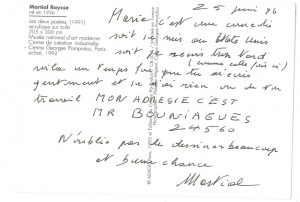 Martial Raysse
né en 1936
Les deux poètes, (1991)
acrylique sur toile
203 x 300 cm
Musée national d'art moderne
Centre de création industrielle
Centre Georges Pompidou, Paris
achat, 1992
25 juin 96.
Marie c'est une
soit je suis au Etats Unis
soit je trop tard
(comme cette fois ci)
voilà un temps fou que tu m'écris
gentiment et je n'ai rien vu de ton
travail MON ADRESSE C'EST
MR BOUNIAGUES
24560
N'oublie pas de dessiner beaucoup
et bonne chance
Martial